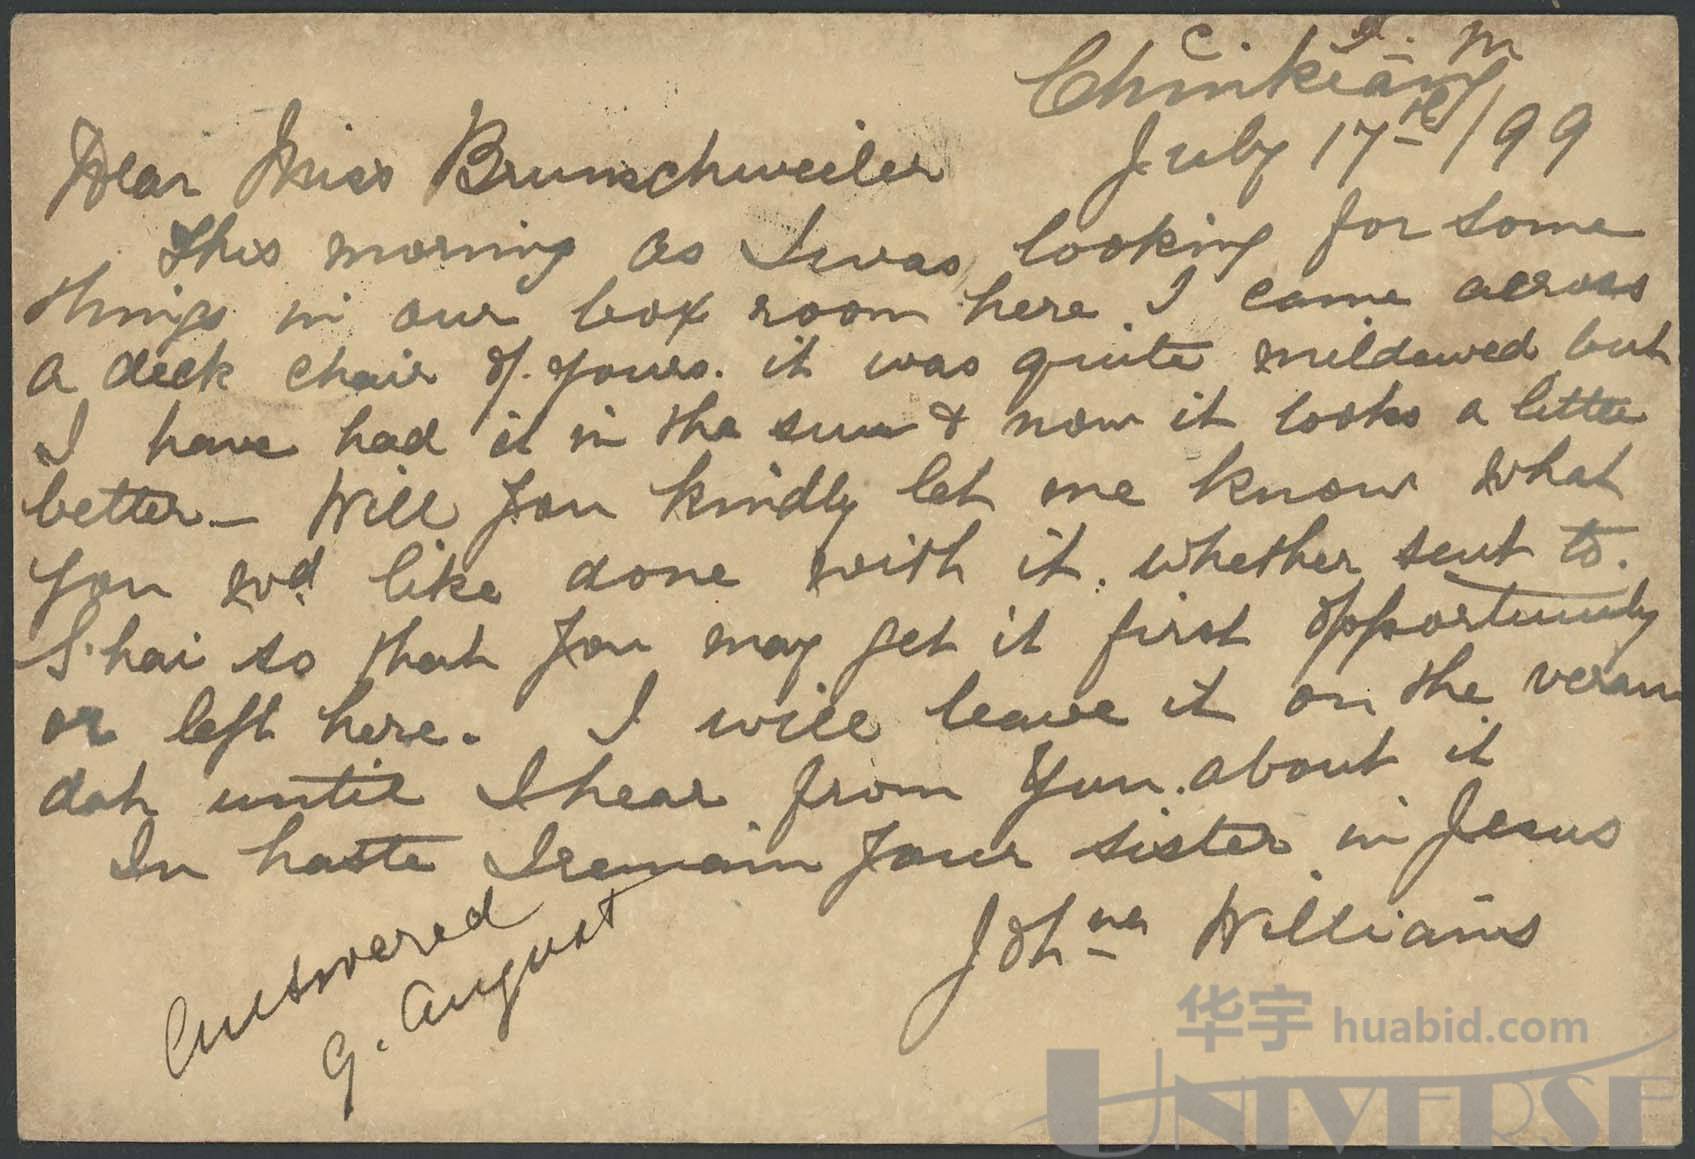 C. I. M
Chinkiang
July 17th/99
Dear Miss Brunschweiler
This morning as I was looking for some
things in our box room here I came across
a deck chair of yours. it was quite mildewed but
I have had it in the sun & now it looks a little
better - Will you kindly let me know what
you wd like done with it. whether sent to
S'hai so that you may get it first opportunity
or left here. I will leave it on the veran
dah until I hear from you about it
In haste I remain your sister in Jesus
Johna Williams
Answered
9. August
华宇 huabid.com
UNIVERSE